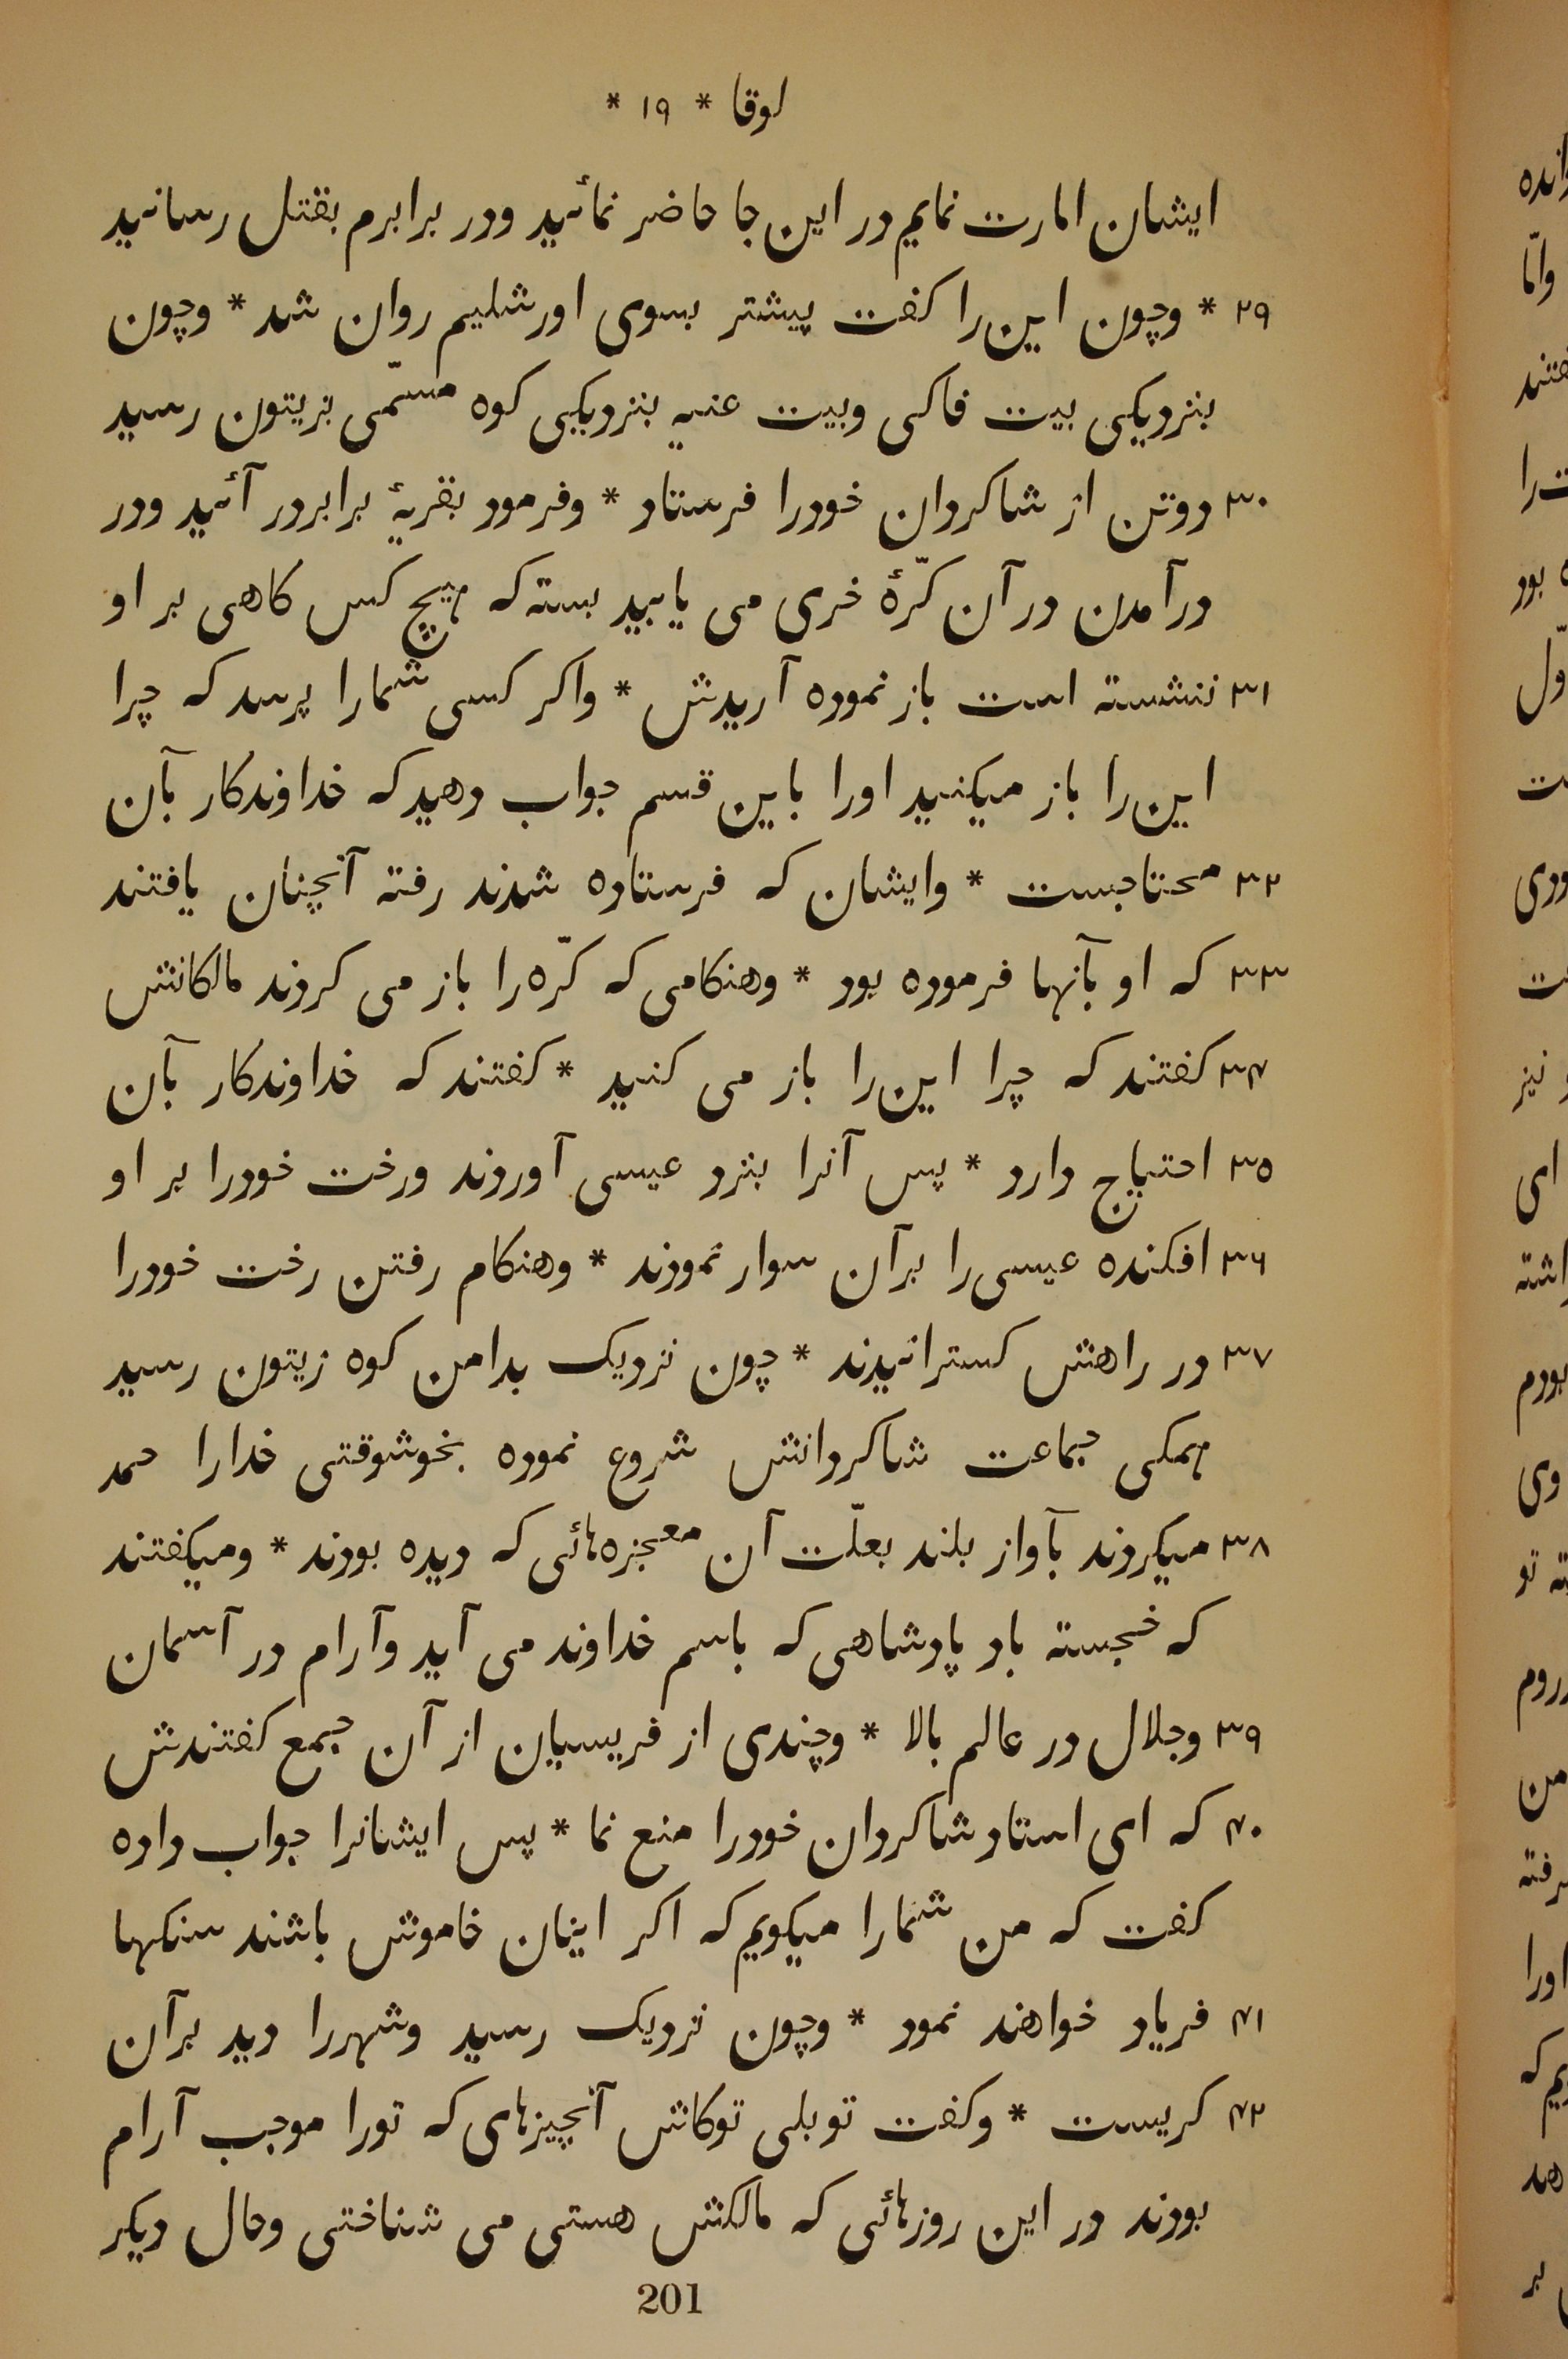 لوقا * ۱۹ *
ایشان امارت نمایم در این جا حاضر نمائید ودر برابرم بقتل رسانید
۲۹ * وچون این را کفت پیشتر بسوی اورشلیم روان شد * وچون
بنزدیکی بیت فاکی وبیت عنیه بنزدیکی کوه مسمّی بزیتون رسید
۳۰ دوتن از شاکردان خودرا فرستاد * وفرمود بقریهٔ برابردر آئید ودر
درآمدن در آن کرّهٔ خری می یابید بسته که هیچ کس کاهی بر او
۳۱ ننشسته است باز نموده آریدش * واکر کسی شمارا پرسد که چرا
این را باز میکنید اورا باین قسم جواب دهید که خداوندکار بآن
۳۲ محتاجست * وایشان که فرستاده شدند رفته آنچنان یافتند
۳۳ که او بآنها فرموده بود * وهنکامی که کرّه را باز می کردند مالکانش
۳۴ کفتند که چرا این را باز می کنید * کفتند که خداوندکار بآن
۳۵ احتیاج دارد * پس آنرا بنزد عیسی آوردند ورخت خودرا بر او
۳۶ افکنده عیسی را برآن سوار نمودند * وهنکام رفتن رخت خودرا
۳۷ در راهش کسترانیدند * چون نزدیک بدامن کوه زیتون رسید
همکی جماعت شاکردانش شروع نموده بخوشوقتی خدارا حمد
۳۸ میکردند بآواز بلند بعلّت آن معجزه‌هائی که دیده بودند * ومیکفتند
که خجسته باد پادشاهی که باسم خداوند می آید وآرام در آسمان
۳۹ وجلال در عالم بالا * وچندی از فریسیان از آن جمع کفتندش
۴۰ که ای استاد شاکردان خودرا منع نما * پس ایشانرا جواب داده
کفت که من شمارا میکویم که اکر اینان خاموش باشند سنکها
۴۱ فریاد خواهند نمود * وچون نزدیک رسید وشهررا دید برآن
۴۲ کریست * وکفت تو بلی توکاش آنچیزهای که تورا موجب آرام
بودند در این روزهائی که مالکش هستی می شناختی وحال دیکر
201